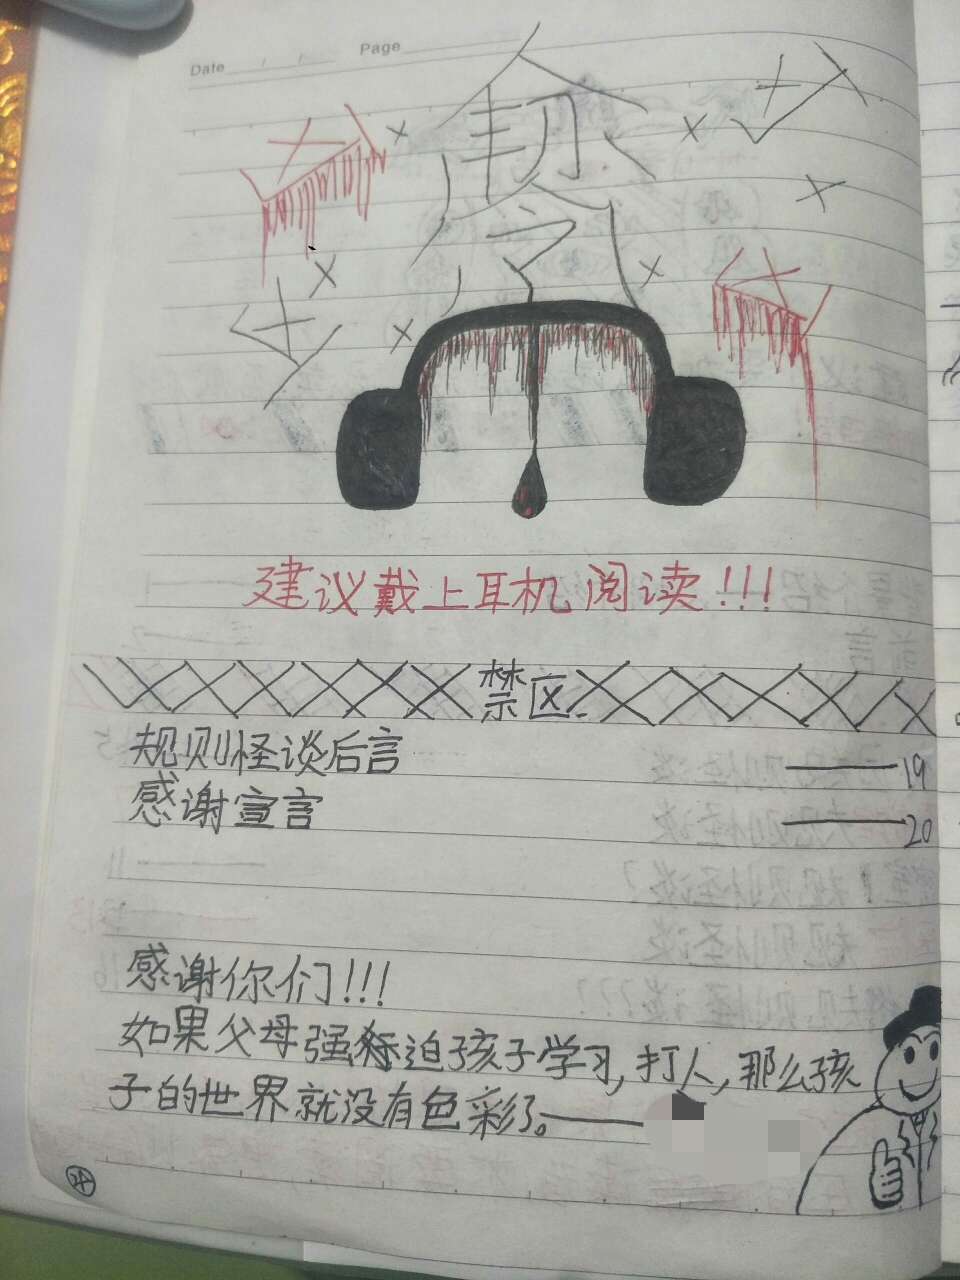 Date Page
建议戴上耳机阅读!!!
禁区
规则怪谈后言 ——19
感谢宣言 ——20
感谢你们!!!
如果父母强迫孩子学习,打人,那么孩
子的世界就没有色彩了。——